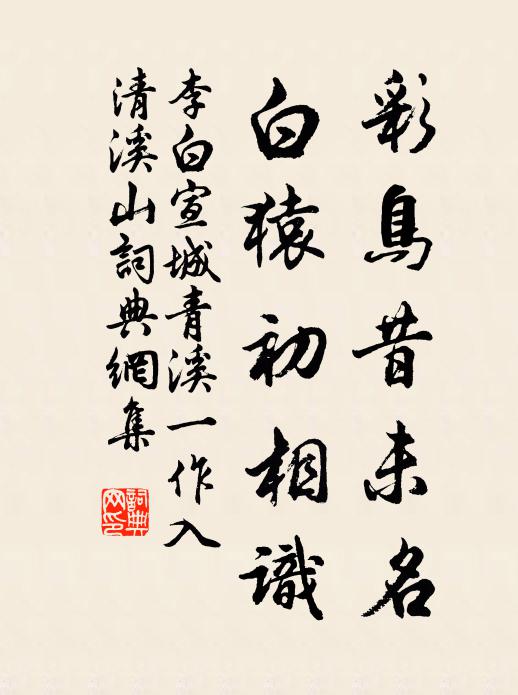 彩鳥昔未名
白猿初相識
李白宣城青溪一作入
清溪山詞典網集
詞典
网印